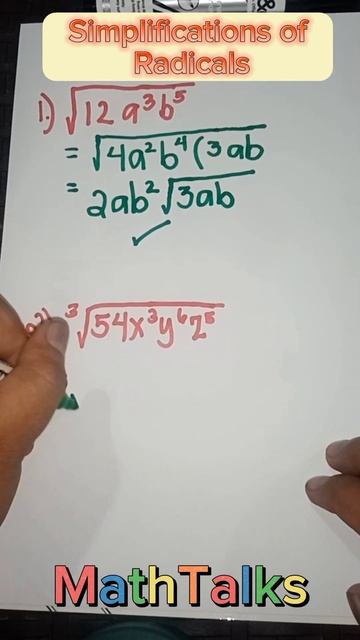 Simplifications of
Radicals
1.) √12a³b⁵
= √4a²b⁴(3ab
= 2ab²√3ab
³√54x³y⁶z⁵
MathTalks